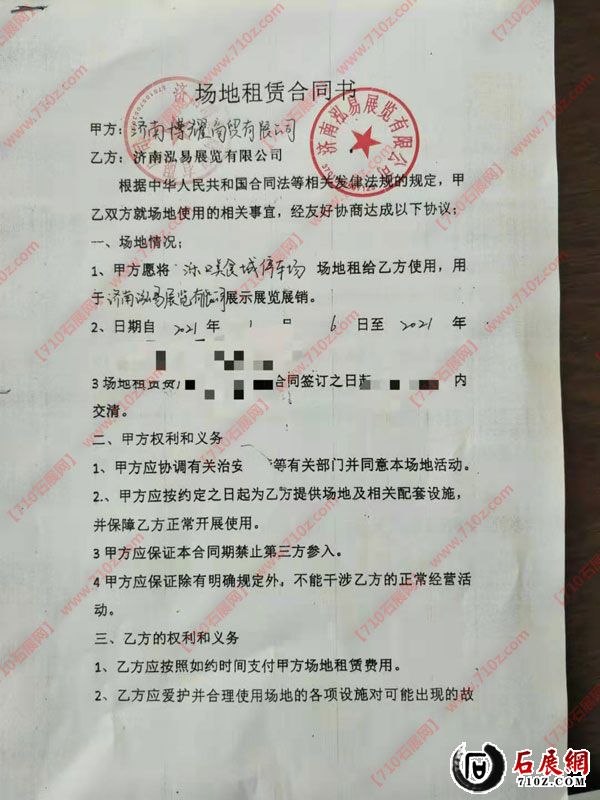 场地租赁合同书
甲方：济南博耀商贸有限公司
乙方：济南泓易展览有限公司
根据中华人民共和国合同法等相关发律法规的规定，甲
乙双方就场地使用的相关事宜，经友好协商达成以下协议；
一、场地情况；
1、甲方愿将 美食城停车场 场地租给乙方使用，用
于济南泓易展览有限公司展示展览展销。
2、日期自 2021 年 1 月 6 日至 2021 年
3 场地租赁费 合同签订之日 内
交清。
二、甲方权利和义务
1、甲方应协调有关治安 等有关部门并同意本场地活动。
2.、甲方应按约定之日起为乙方提供场地及相关配套设施，
并保障乙方正常开展使用。
3 甲方应保证本合同期禁止第三方参入。
4 甲方应保证除有明确规定外，不能干涉乙方的正常经营活
动。
三、乙方的权利和义务
1、乙方应按照如约时间支付甲方场地租赁费用。
2、乙方应爱护并合理使用场地的各项设施对可能出现的故
济南泓易展览有限公司
【710石展网】www.710z.com
石展網
710Z.COM